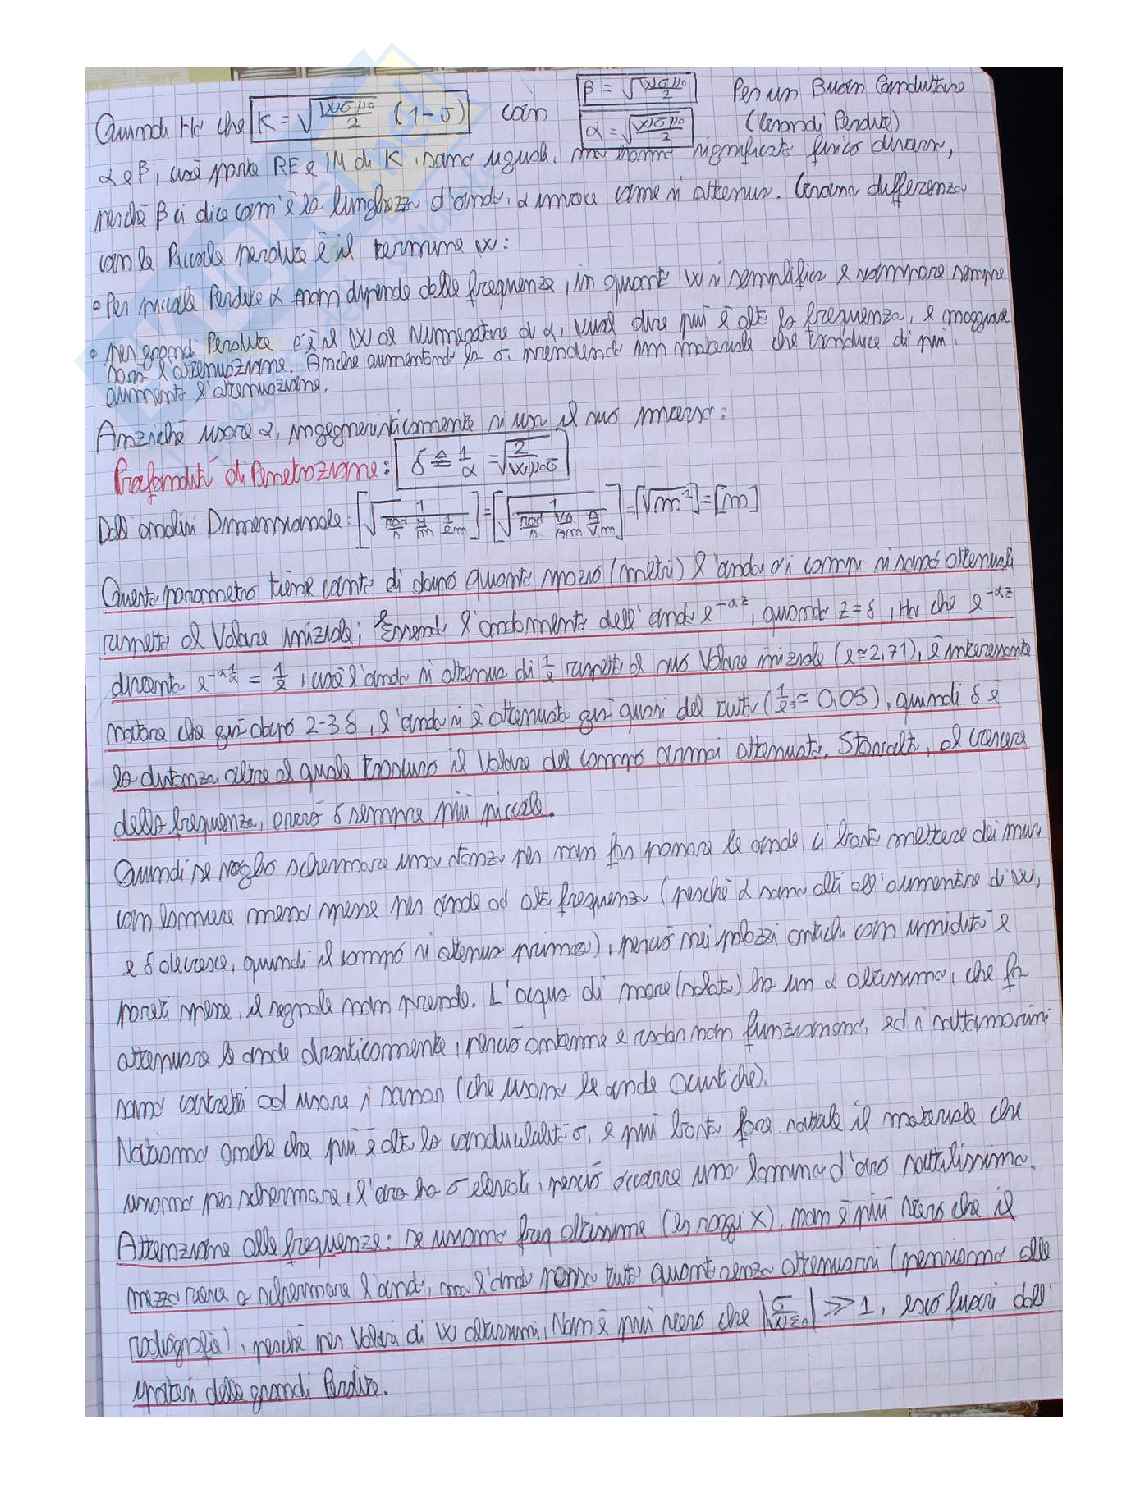 Quindi Ho che K = √(ωσμ₀/2) (1-J) con β = √(ωσμ₀/2) Per un Buon Conduttore
α = √(ωσμ₀/2) (Grandi Perdite)
α e β, cioè parte RE e IM di K, sono uguali, ma hanno significato fisico diverso,
perché β ci dice com'è la lunghezza d'onda, α invece come si attenua. Grande differenza
con le Piccole perdite è il termine ω:
• Per piccole Perdite α non dipende dalla frequenza, in quanto ω si semplifica e scompare sempre
• per grandi Perdite c'è il ω al Numeratore di α, vuol dire più è alta la frequenza, e maggiore
sarà l'attenuazione. Anche aumentando la σ prendendo un materiale che conduce di più,
aumenta l'attenuazione.
Anziché usare α, ingegneristicamente si usa il suo inverso:
Profondità di Penetrazione: δ ≜ 1/α = √(2/ωμ₀σ)
Dall'analisi Dimensionale: [√(1/(rad/s H/m 1/Ωm))] = [√(1/(rad/s Vs/Am A/Vm))] = [√m²] = [m]
Questo parametro tiene conto di dopo quanto spazio (metri) l'onda o i campi si sono attenuati
rispetto al Valore iniziale; Essendo l'andamento dell'onda e^-αz, quando z=δ, Ho che e^-αz
diventa e^-α1/α = 1/e, cioè l'onda si attenua di 1/e rispetto al suo Valore iniziale (e≃2,71), è interessante
notare che già dopo 2-3 δ, l'onda si è attenuata già quasi del tutto (1/e³ = 0,05), quindi δ è
la distanza oltre al quale trascuro il Valore del campo ormai attenuato. Stavolta, al crescere
della frequenza, avrò δ sempre più piccolo.
Quindi se voglio schermare una stanza per non far passare le onde, ci basta mettere dei muri
con lamiere meno spesse per onde ad alta frequenza (perché α sarà alta all'aumentare di ω,
e δ decresce, quindi il campo si attenua prima), perciò nei palazzi antichi con umidità e
pareti spesse, il segnale non prende. L'acqua di mare (salata) ha un α altissimo, che fa
attenuare le onde drasticamente, perciò antenne e radar non funzionano, ed i sottomarini
sono costretti ad usare i sonar (che usano le onde acustiche).
Notiamo anche che più è alta la conducibilità σ, e più basta fare sottile il materiale che
usiamo per schermare, l'oro ha σ elevata, perciò occorre una lamina d'oro sottilissima.
Attenzione alle frequenze: se usiamo freq altissime (es raggi X), non è più vero che il
mezzo riesce a schermare l'onda, ma l'onda passa tutta quanta senza attenuarsi (pensiamo alle
radiografie), perché per Valori di ω altissimi, Non è più vero che |σ/ωε₀| ≫ 1, esco fuori dall'
ipotesi delle grandi Perdite.